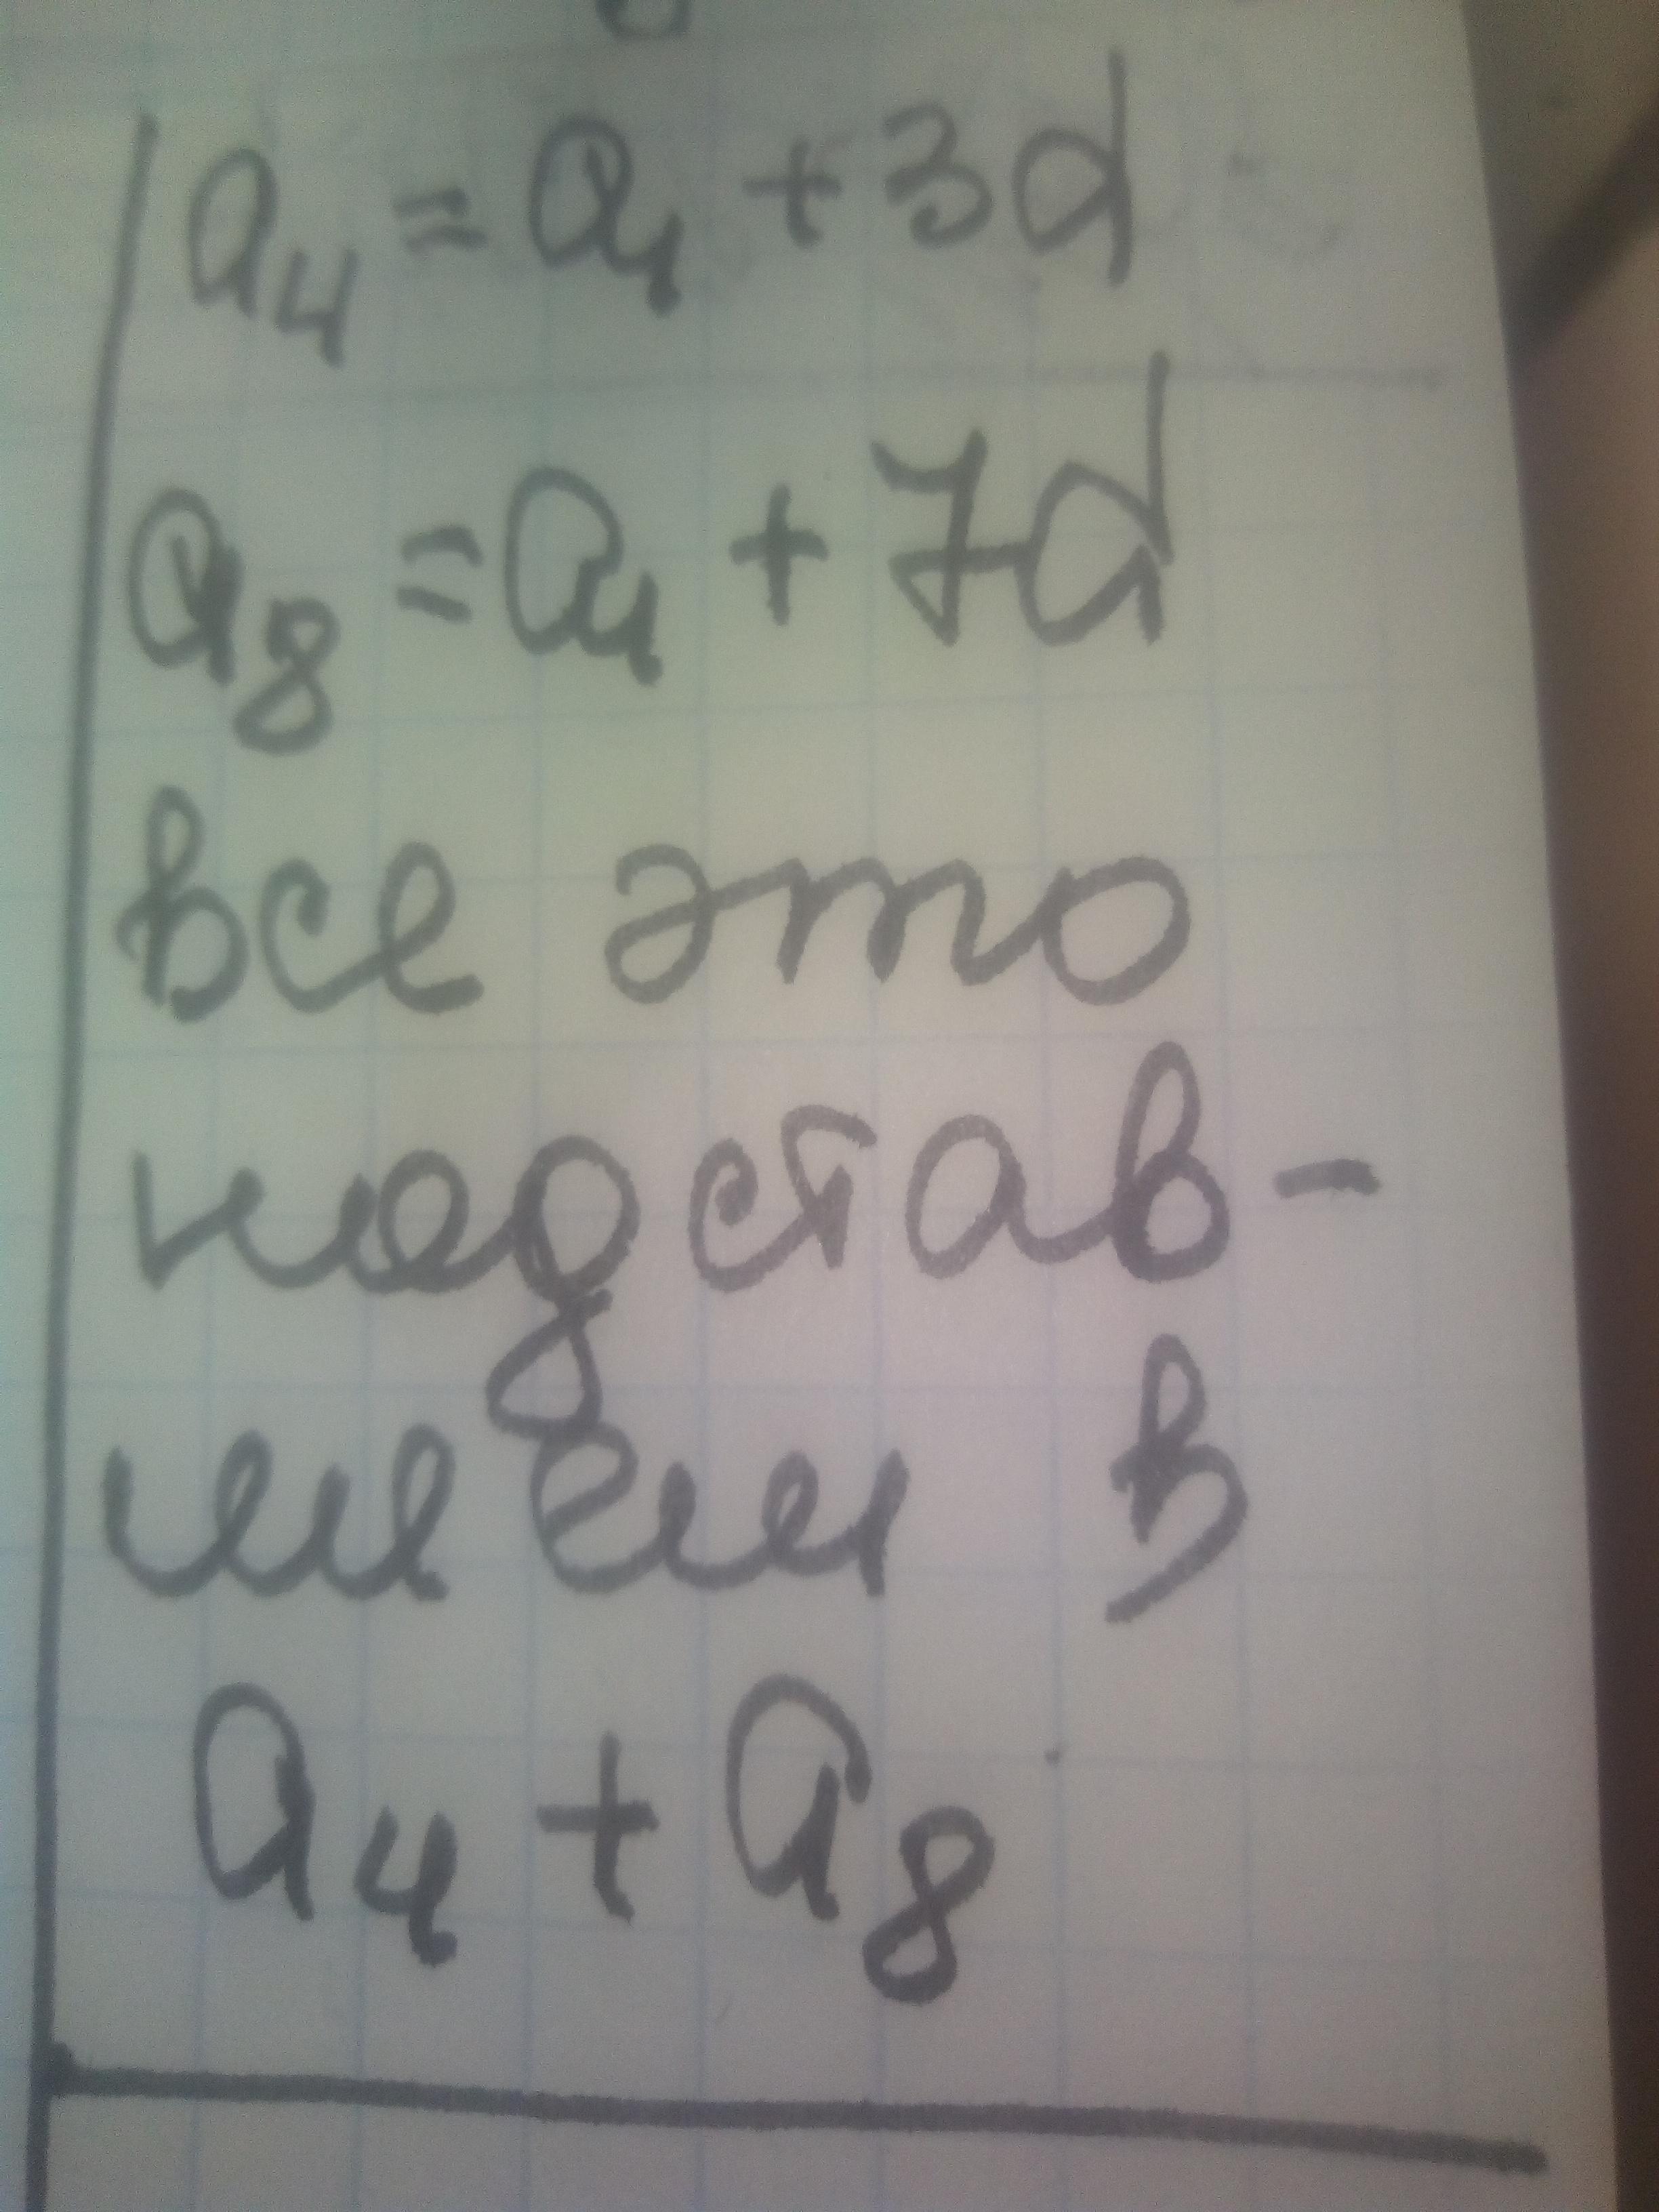 a₄ = a₁ + 3d
a₈ = a₁ + 7d
все это
подстав-
ляем в
a₄ + a₈